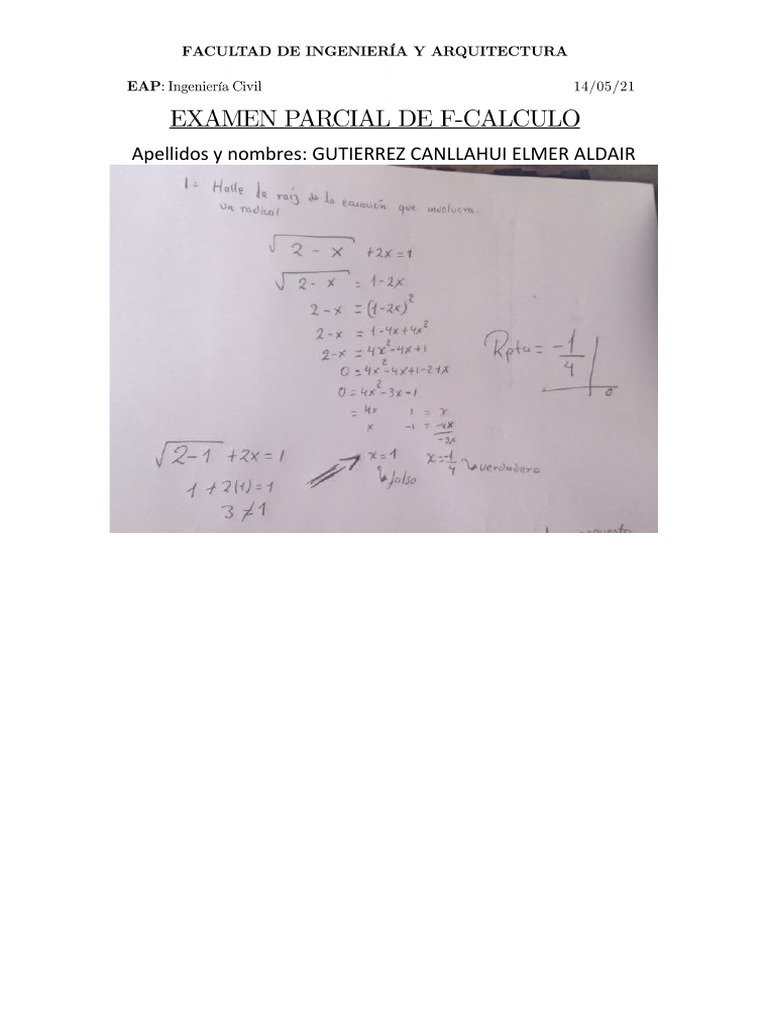 FACULTAD DE INGENIERÍA Y ARQUITECTURA
EAP: Ingeniería Civil 14/05/21
EXAMEN PARCIAL DE F-CALCULO
Apellidos y nombres: GUTIERREZ CANLLAHUI ELMER ALDAIR
1= Halle la raiz de la ecuación que involucra
un radical
√2 - x + 2x = 1
√2 - x = 1 - 2x
2 - x = (1-2x)²
2 - x = 1 - 4x + 4x²
2 - x = 4x² - 4x + 1
0 = 4x² - 4x + 1 - 2 + x
0 = 4x² - 3x - 1
= 4x 1 = x
x -1 = -4x
-3x
x = 1 x = -1/4 verdadero
falso
√2-1 + 2x = 1
1 + 2(1) = 1
3 ≠ 1
Rpta = -1/4
0